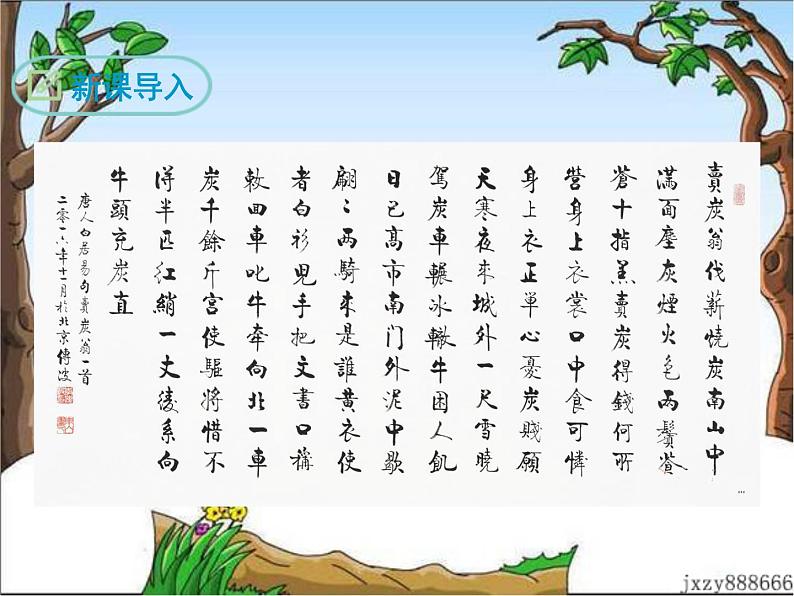 新课导入
賣炭翁伐薪燒炭南山中
滿面塵灰煙火色兩鬢蒼
蒼十指黑賣炭得錢何所
營身上衣裳口中食可憐
身上衣正単心憂炭賤願
天寒夜來城外一尺雪曉
駕炭車輾冰轍牛困人飢
日已高市南门外泥中歇
翩〻兩騎來是誰黄衣使
者白衫兒手把文書口稱
敕回車叱牛牽向北一車
炭千餘斤宮使驅將惜不
得半匹红綃一丈綾系向
牛頭充炭直
唐人白居易句賣炭翁一首
二零一六年十一月於北京傅波
jxzy888666